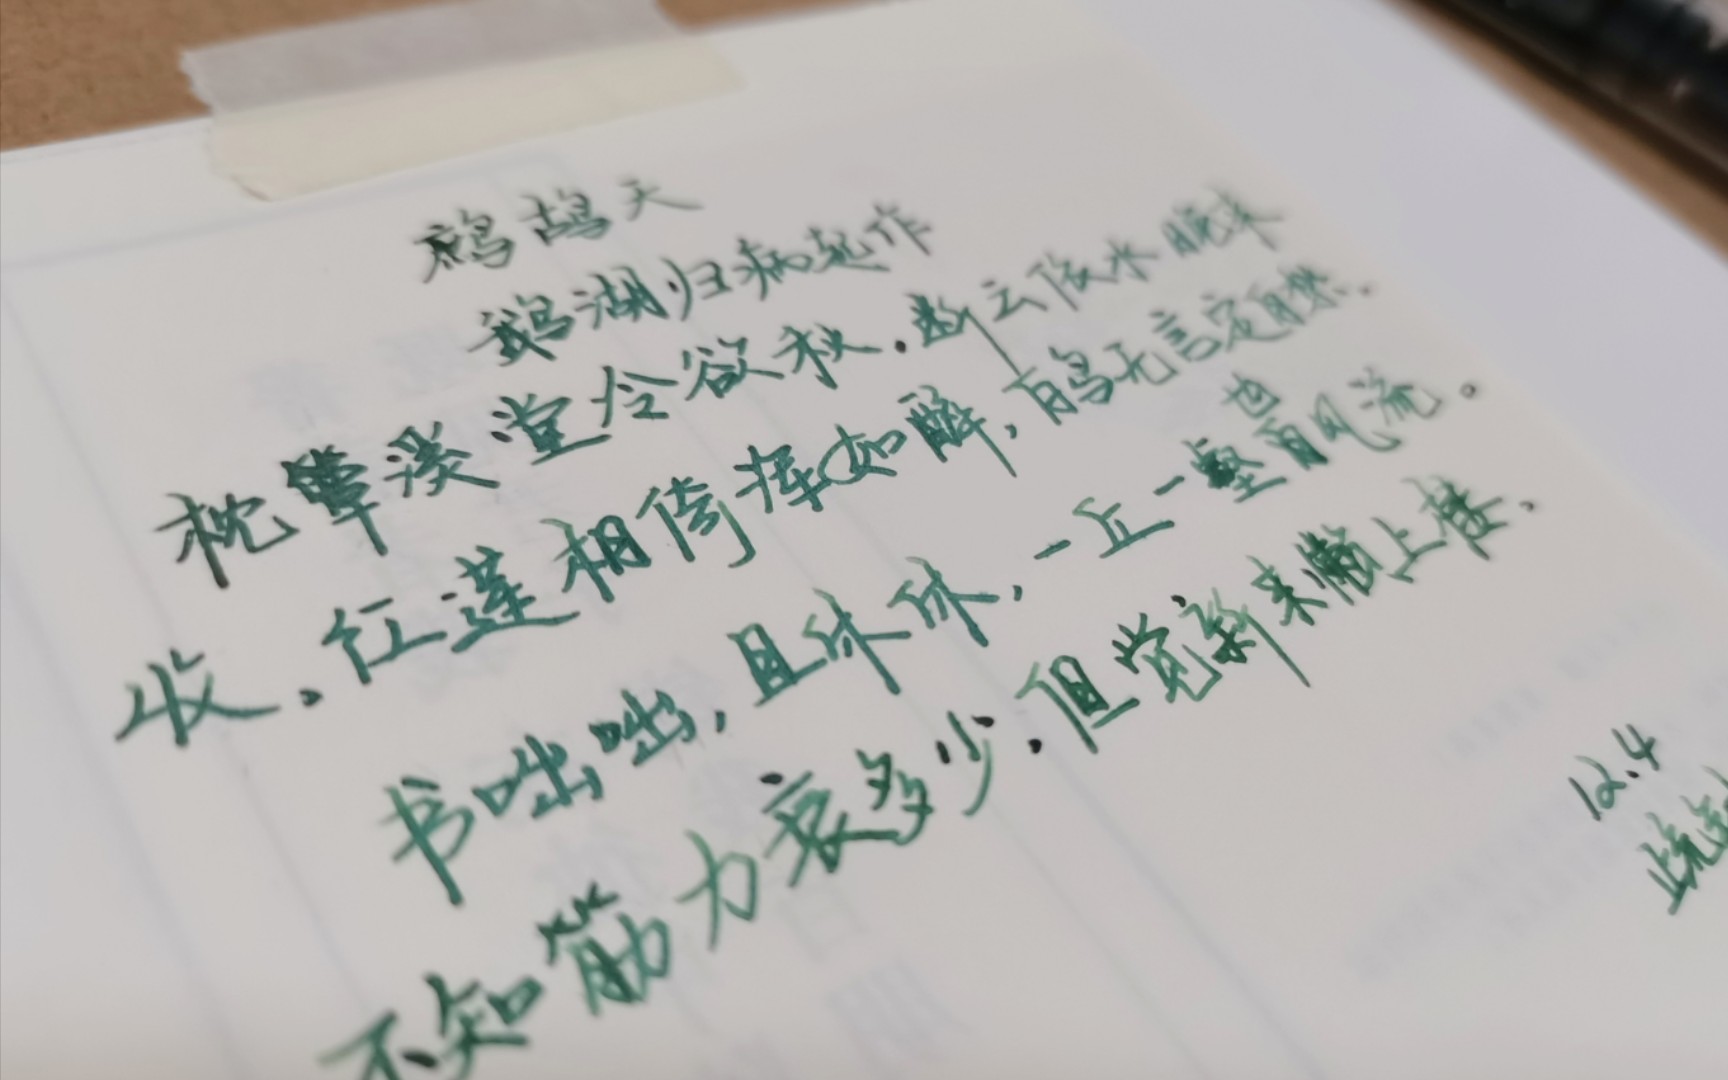 鹧鸪天
鹅湖归病起作
枕簟溪堂冷欲秋.断云依水晚来
收.红莲相倚浑如醉,白鸟无言定自愁.
书咄咄,且休休.一丘一壑也自风流。
不知筋力衰多少.但觉新来懒上楼.
12.4